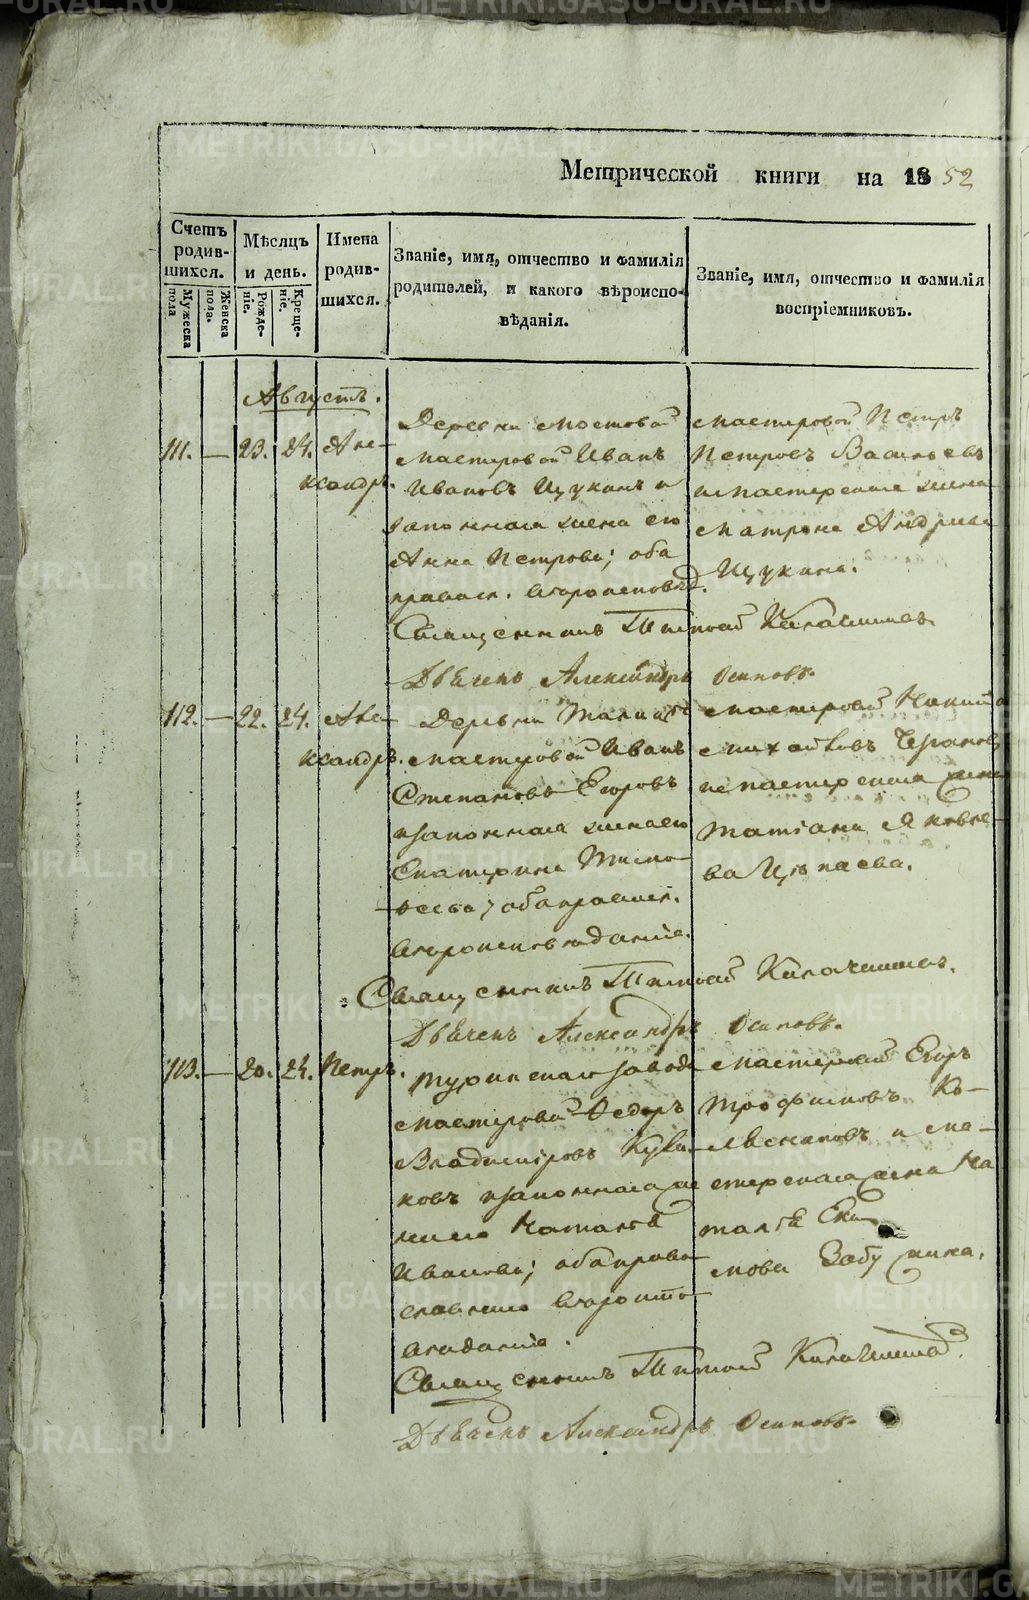 Метрической книги на 1852
Счетъ родив-шихся.
Мужеска пола
Женска пола.
Мѣсяцъ и день.
Рожде-нiе.
Креще-нiе.
Имена родив-шихся.
Званiе, имя, отчество и фамилiя
родителей, и какого вѣроиспо-
вѣданiя.
Званiе, имя, отчество и фамилiя
воспрiемниковъ.
Августъ.
111. — 23. 24. Але-
ксандръ.
Деревни Мостовой
мастеровой Иванъ
Ивановъ Щукинъ и
законная жена его
Анна Петрова; оба
правосл. вѣроисповѣд.
мастеровой Петръ
Петровъ Васильевъ
и мастерская жена
Матрона Андреева
Щукина.
Священникъ
Дьячекъ Александръ Осиповъ.
112. — 22. 24. Але-
ксандръ.
Деревни
мастеровой Иванъ
Степановъ Егоровъ
и законная жена его
Екатерина Тимо-
ѳеева; оба правосл.
вѣроисповѣданiя.
мастеровой Никита
и мастерская жена
Татiана Яковле-
ва
Священникъ
Дьячекъ Александръ Осиповъ.
113. — 20. 24. Петръ.
Туринскаго завода
мастеровой Ѳедоръ
Владимiровъ
и законная же
на его Наталья
Иванова; оба право-
славнаго вѣроиспо-
вѣданiя.
мастерской Егоръ
Трофимовъ Ко-
и ма-
стерская жена На
талья
мова
Священникъ
Дьячекъ Александръ Осиповъ.
METRIKI.GASO-URAL.RU